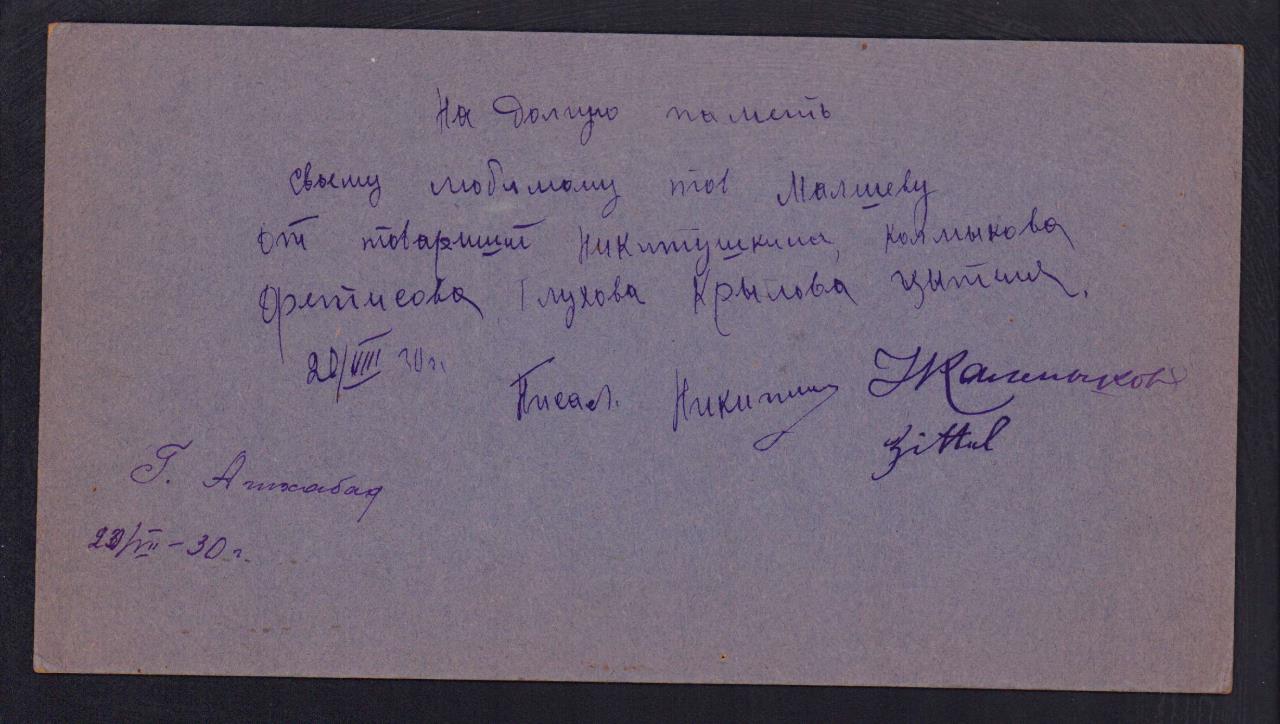 На Долгую паметь
своему любимому тов Малшеву
от товаришат Никитушкина, Колмыкова
Фетисова Глухова Крылова Цытеля.
20/VIII 30 г.
Писал. Никитин Калмыков
Zittel
Г. Ашхабад
/VII - 30 г.